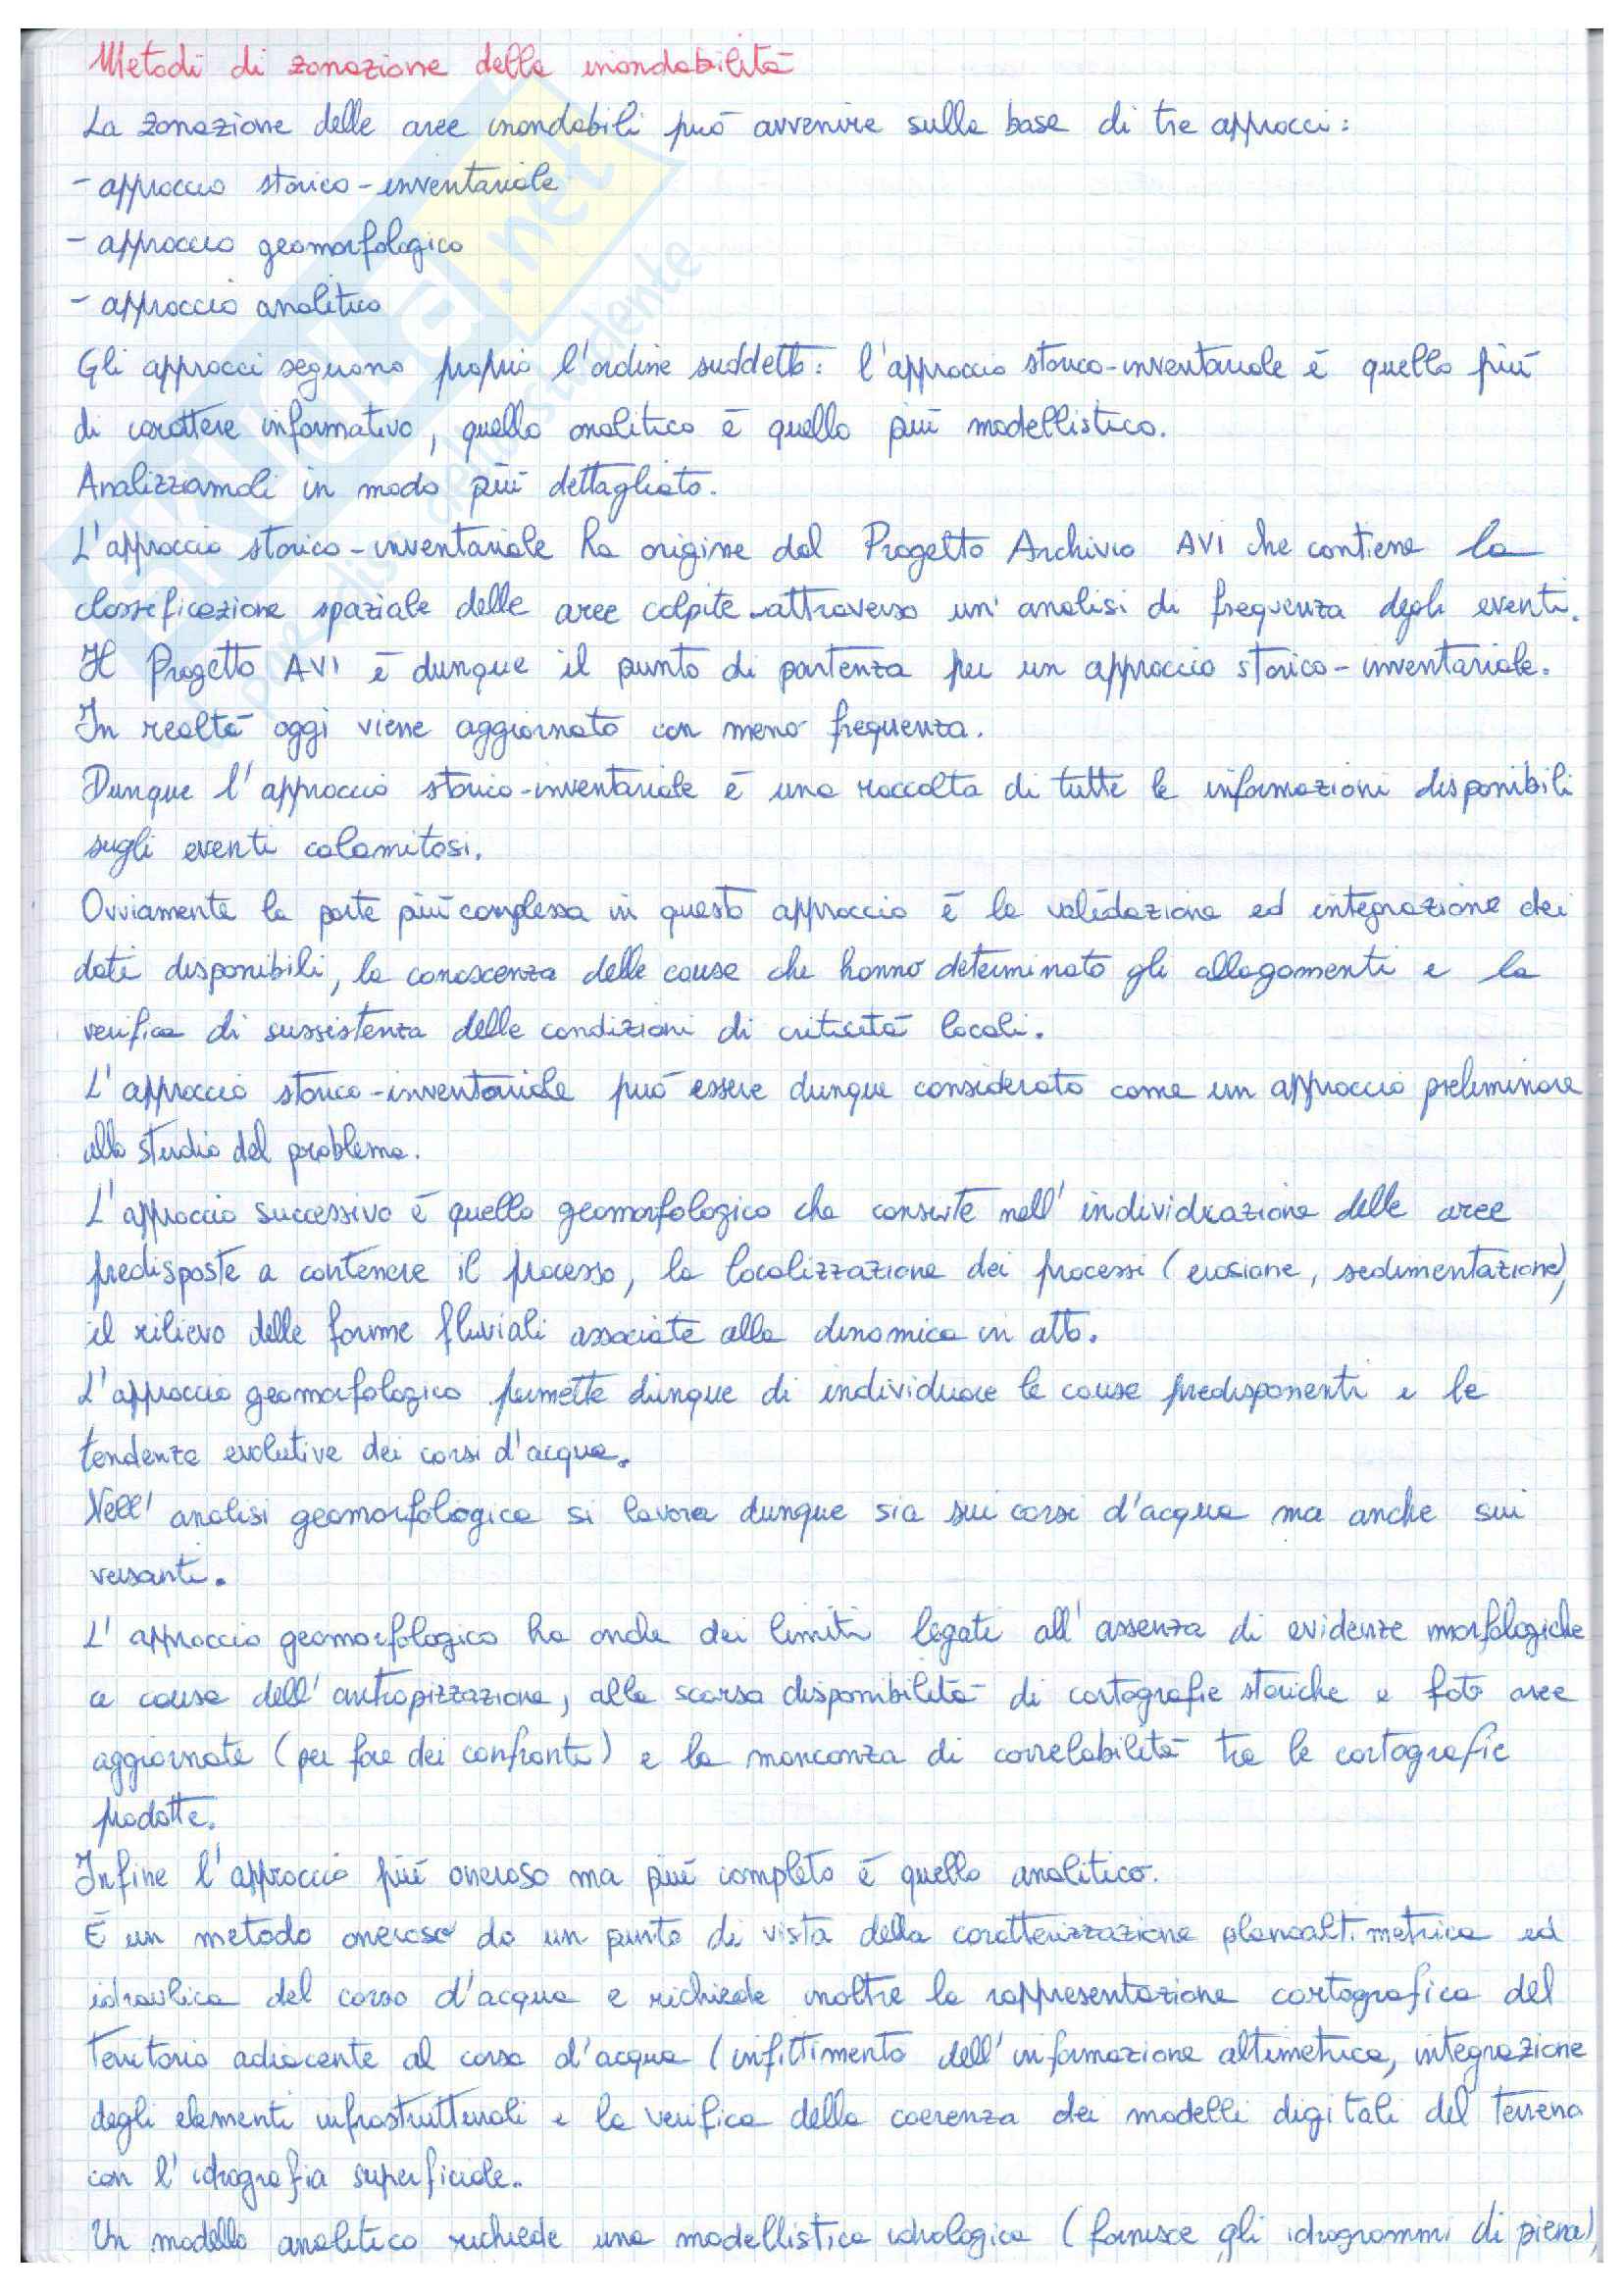 Metodi di zonazione della inondabilità
La zonazione delle aree inondabili può avvenire sulla base di tre approcci:
- approccio storico-inventariale
- approccio geomorfologico
- approccio analitico
Gli approcci seguono proprio l'ordine suddetto: l'approccio storico-inventariale è quello più
di carattere informativo, quello analitico è quello più modellistico.
Analizziamoli in modo più dettagliato.
L'approccio storico-inventariale ha origine dal Progetto Archivio AVI che contiene la
classificazione spaziale delle aree colpite attraverso un'analisi di frequenza degli eventi.
Il Progetto AVI è dunque il punto di partenza per un approccio storico-inventariale.
In realtà oggi viene aggiornato con meno frequenza.
Dunque l'approccio storico-inventariale è una raccolta di tutte le informazioni disponibili
sugli eventi calamitosi.
Ovviamente la parte più complessa in questo approccio è la validazione ed integrazione dei
dati disponibili, la conoscenza delle cause che hanno determinato gli allagamenti e la
verifica di sussistenza delle condizioni di criticità locali.
L'approccio storico-inventariale può essere dunque considerato come un approccio preliminare
allo studio del problema.
L'approccio successivo è quello geomorfologico che consiste nell'individuazione delle aree
predisposte a contenere il processo, la localizzazione dei processi (erosione, sedimentazione),
il rilievo delle forme fluviali associate alla dinamica in atto.
L'approccio geomorfologico permette dunque di individuare le cause predisponenti e le
tendenze evolutive dei corsi d'acqua.
Nell'analisi geomorfologica si lavora dunque sia sui corsi d'acqua ma anche sui
versanti.
L'approccio geomorfologico ha anche dei limiti legati all'assenza di evidenze morfologiche
a causa dell'antropizzazione, alla scarsa disponibilità di cartografie storiche e foto aree
aggiornate (per fare dei confronti) e la mancanza di correlabilità tra le cartografie
prodotte.
Infine l'approccio più oneroso ma più completo è quello analitico.
È un metodo oneroso da un punto di vista della caratterizzazione planoaltimetrica ed
idraulica del corso d'acqua e richiede inoltre la rappresentazione cartografica del
territorio adiacente al corso d'acqua (infittimento dell'informazione altimetrica, integrazione
degli elementi infrastrutturali e la verifica della coerenza dei modelli digitali del terreno
con l'idrografia superficiale.
Un modello analitico richiede una modellistica idrologica (fornisce gli idrogrammi di piena),